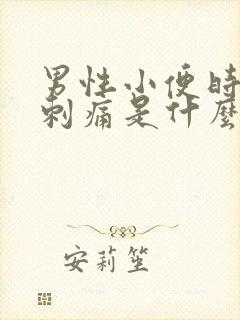 男性小便時
刺痛是什麼
安莉笙